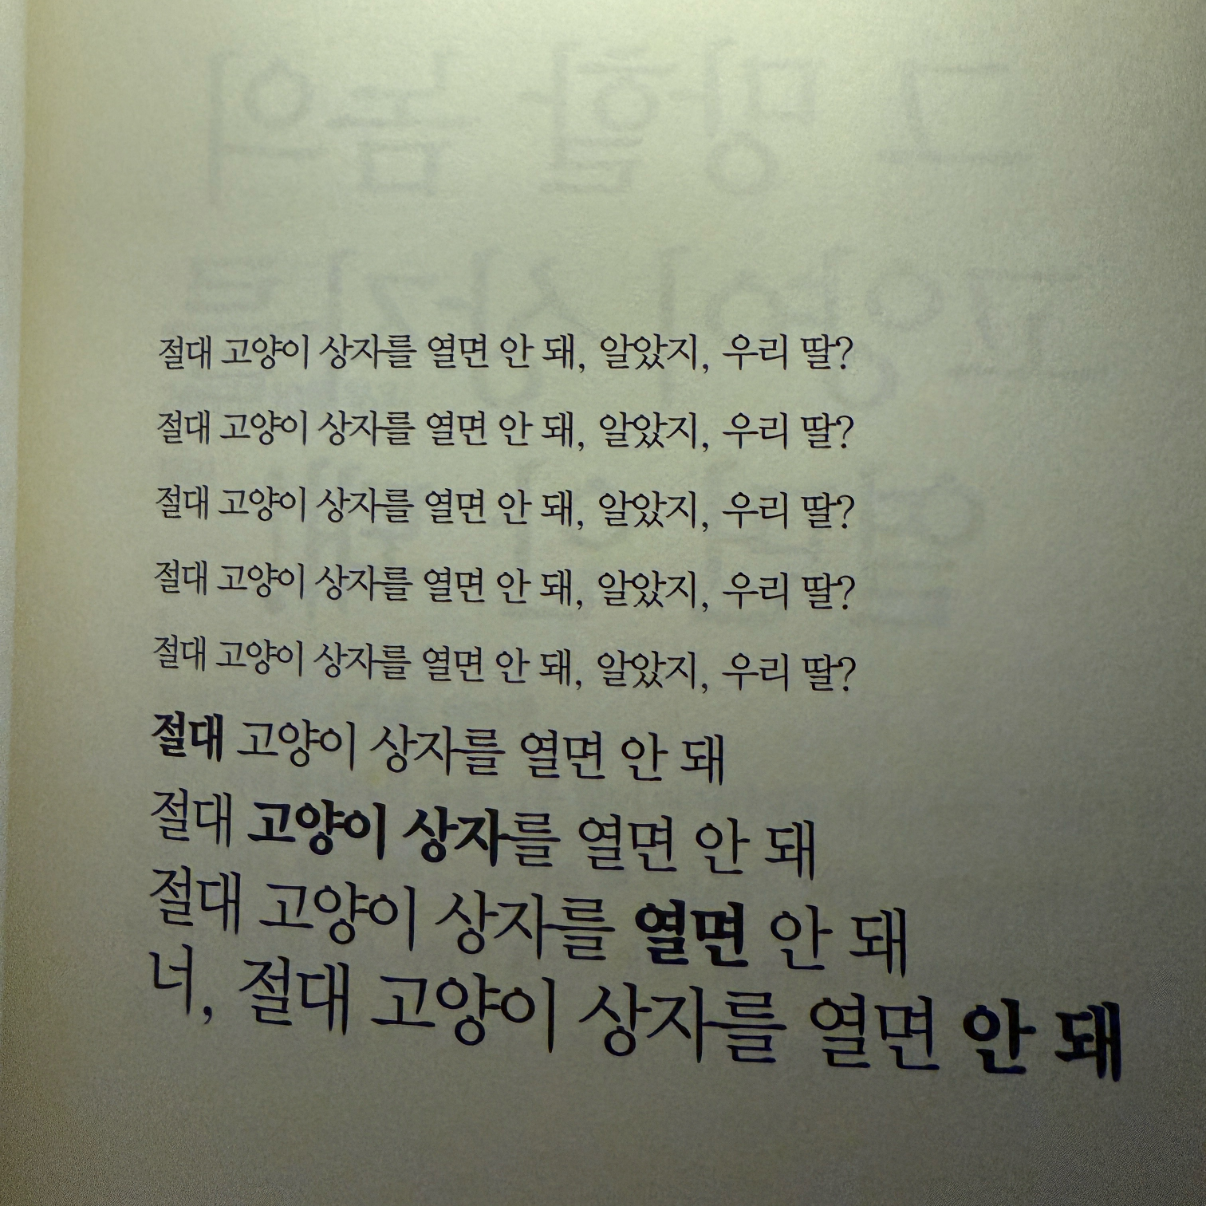 절대 고양이 상자를 열면 안 돼, 알았지, 우리 딸?
절대 고양이 상자를 열면 안 돼, 알았지, 우리 딸?
절대 고양이 상자를 열면 안 돼, 알았지, 우리 딸?
절대 고양이 상자를 열면 안 돼, 알았지, 우리 딸?
절대 고양이 상자를 열면 안 돼, 알았지, 우리 딸?
절대 고양이 상자를 열면 안 돼
절대 고양이 상자를 열면 안 돼
절대 고양이 상자를 열면 안 돼
너, 절대 고양이 상자를 열면 안 돼